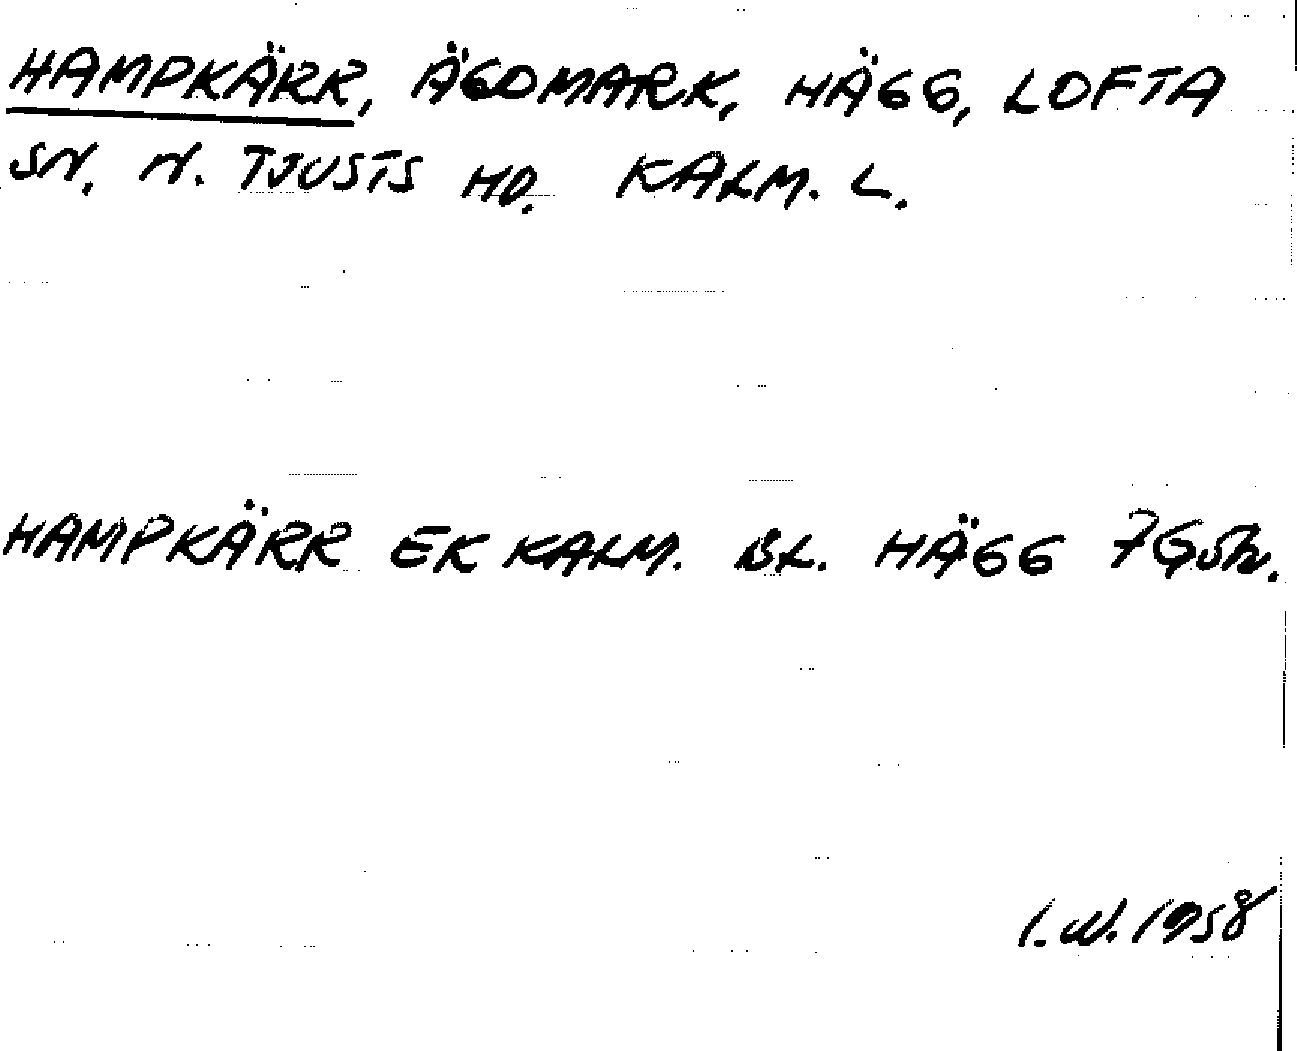 HAMPKÄRR, ÄGOMARK, HÄGG, LOFTA
SN. N. TJUSTS HD. KALM. L.
HAMPKÄRR EK KALM. BL. HÄGG
I. W. 1958